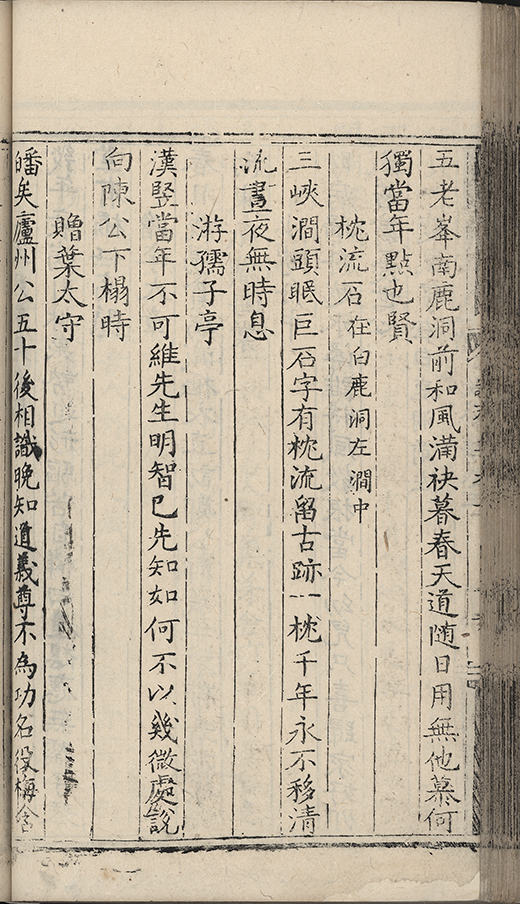 五老峯南鹿洞前和風滿袂暮春天道随日用無他慕何
獨當年點也賢
枕流石在白鹿洞左澗中
三峽澗頭眠巨石字有枕流留古跡一枕千年永不移清
流晝夜無時息
游孺子亭
漢竪當年不可維先生明智已先知如何不以幾微處說
向陳公下榻時
贈葉太守
皤矣廬州公五十後相識晚知道義尊不為功名役梅含